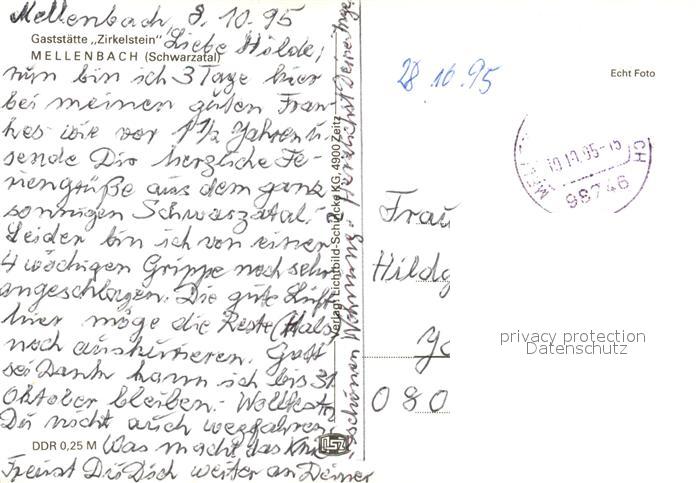 Mellenbach, 8.10.95
Gaststätte „Zirkelstein"
MELLENBACH (Schwarzatal)
Liebe Hilde,
nun bin ich 3 Tage hier
bei meinen guten Fran-
kes wie vor 1 1/2 Jahren u.
sende Dir herzliche Fe-
riengrüße aus dem ganz
sonnigen Schwarzatal.
Leider bin ich von einer
4 wöchigen Grippe noch sehr
angeschlagen. Die gute Luft
hier möge die Reste (Hals)
noch auskurieren. Gott
sei Dank kann ich bis 31.
Oktober bleiben. - Wolltest
Du nicht auch wegfahren.
DDR 0,25 M
Was macht das Knie
Freust Du Dich weiter an Deiner
schönen Wohnung? Herzlichst Deine Inge
Verlag: Lichtbild-Schincke KG, 4900 Zeitz
28.10.95
Echt Foto
98746
Frau
Hildg
080
privacy protection
Datenschutz